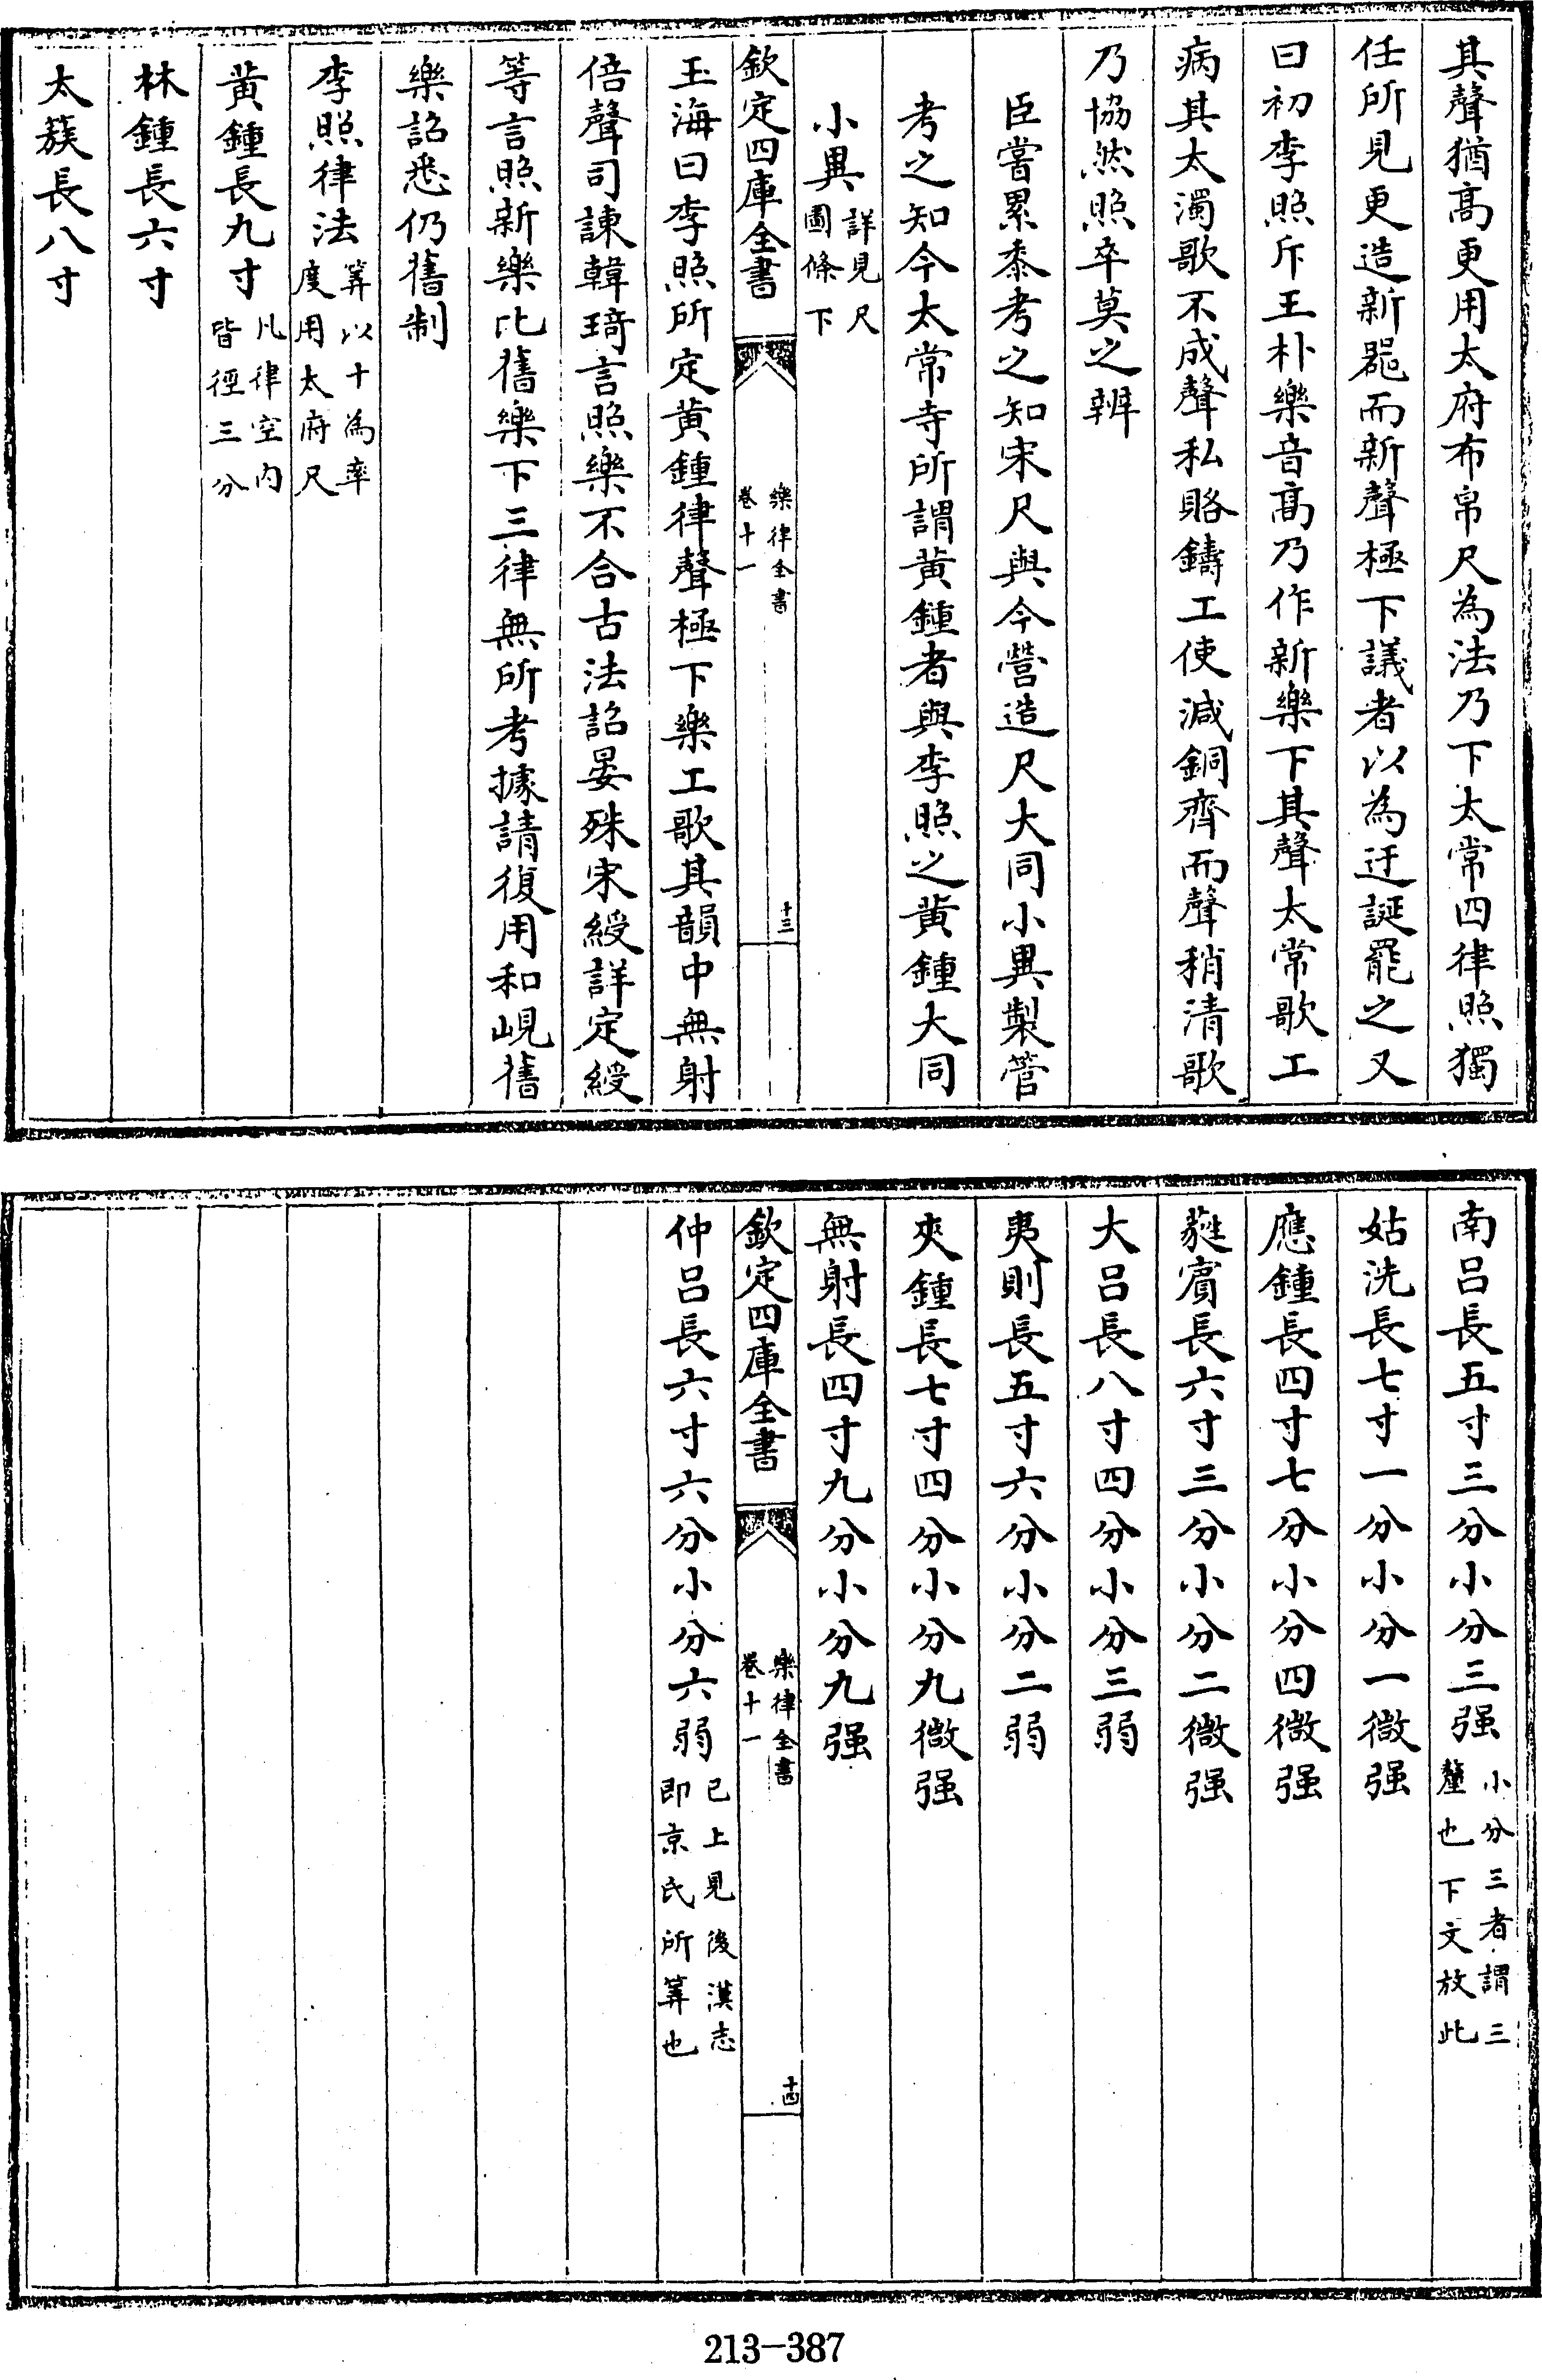 其聲猶髙更用太府布帛尺為法乃下太常四律照獨
任所見更造新噐而新聲極下議者以為迂誕罷之又
曰初李照斥王朴樂音髙乃作新樂下其聲太常歌工
病其太濁歌不成聲私賂鑄工使減銅齊而聲稍清歌
乃協然照卒莫之辨
臣嘗累黍考之知宋尺與今營造尺大同小異製管
考之知今太常寺所謂黄鍾者與李照之黄鍾大同
小異詳見尺圖條下
欽定四庫全書
樂律全書
卷十一
十三
玉海曰李照所定黄鍾律聲極下樂工歌其韻中無射
倍聲司諫韓琦言照樂不合古法詔晏殊宋綬詳定綬
等言照新樂比舊樂下三律無所考據請復用和峴舊
樂詔悉仍舊制
李照律法筭以十為率度用太府尺
黄鍾長九寸凡律空内皆徑三分
林鍾長六寸
太簇長八寸
南吕長五寸三分小分三强小分三者謂三釐也下文放此
姑洗長七寸一分小分一微强
應鍾長四寸七分小分四微强
蕤賓長六寸三分小分二微强
大吕長八寸四分小分三弱
夷則長五寸六分小分二弱
夾鍾長七寸四分小分九微强
無射長四寸九分小分九强
欽定四庫全書
樂律全書
卷十一
十四
仲吕長六寸六分小分六弱已上見後漢志即京氏所筭也
213-387